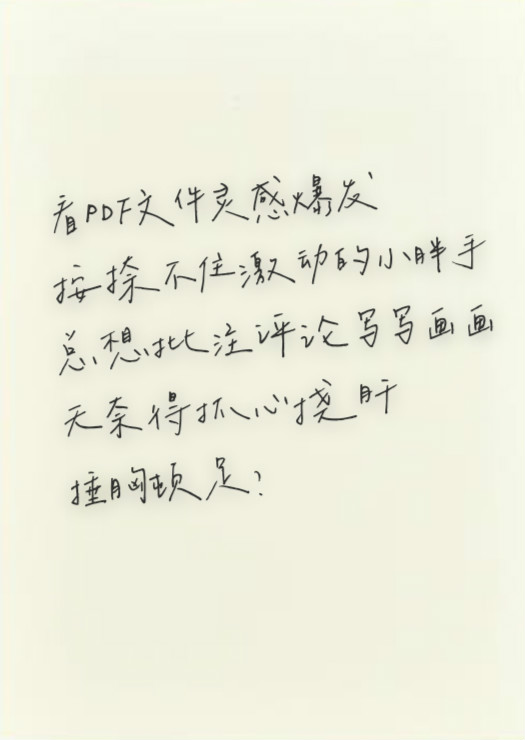 看PDF文件灵感爆发
按捺不住激动的小胖手
总想批注评论写写画画
无奈得抓心挠肝
捶胸顿足?